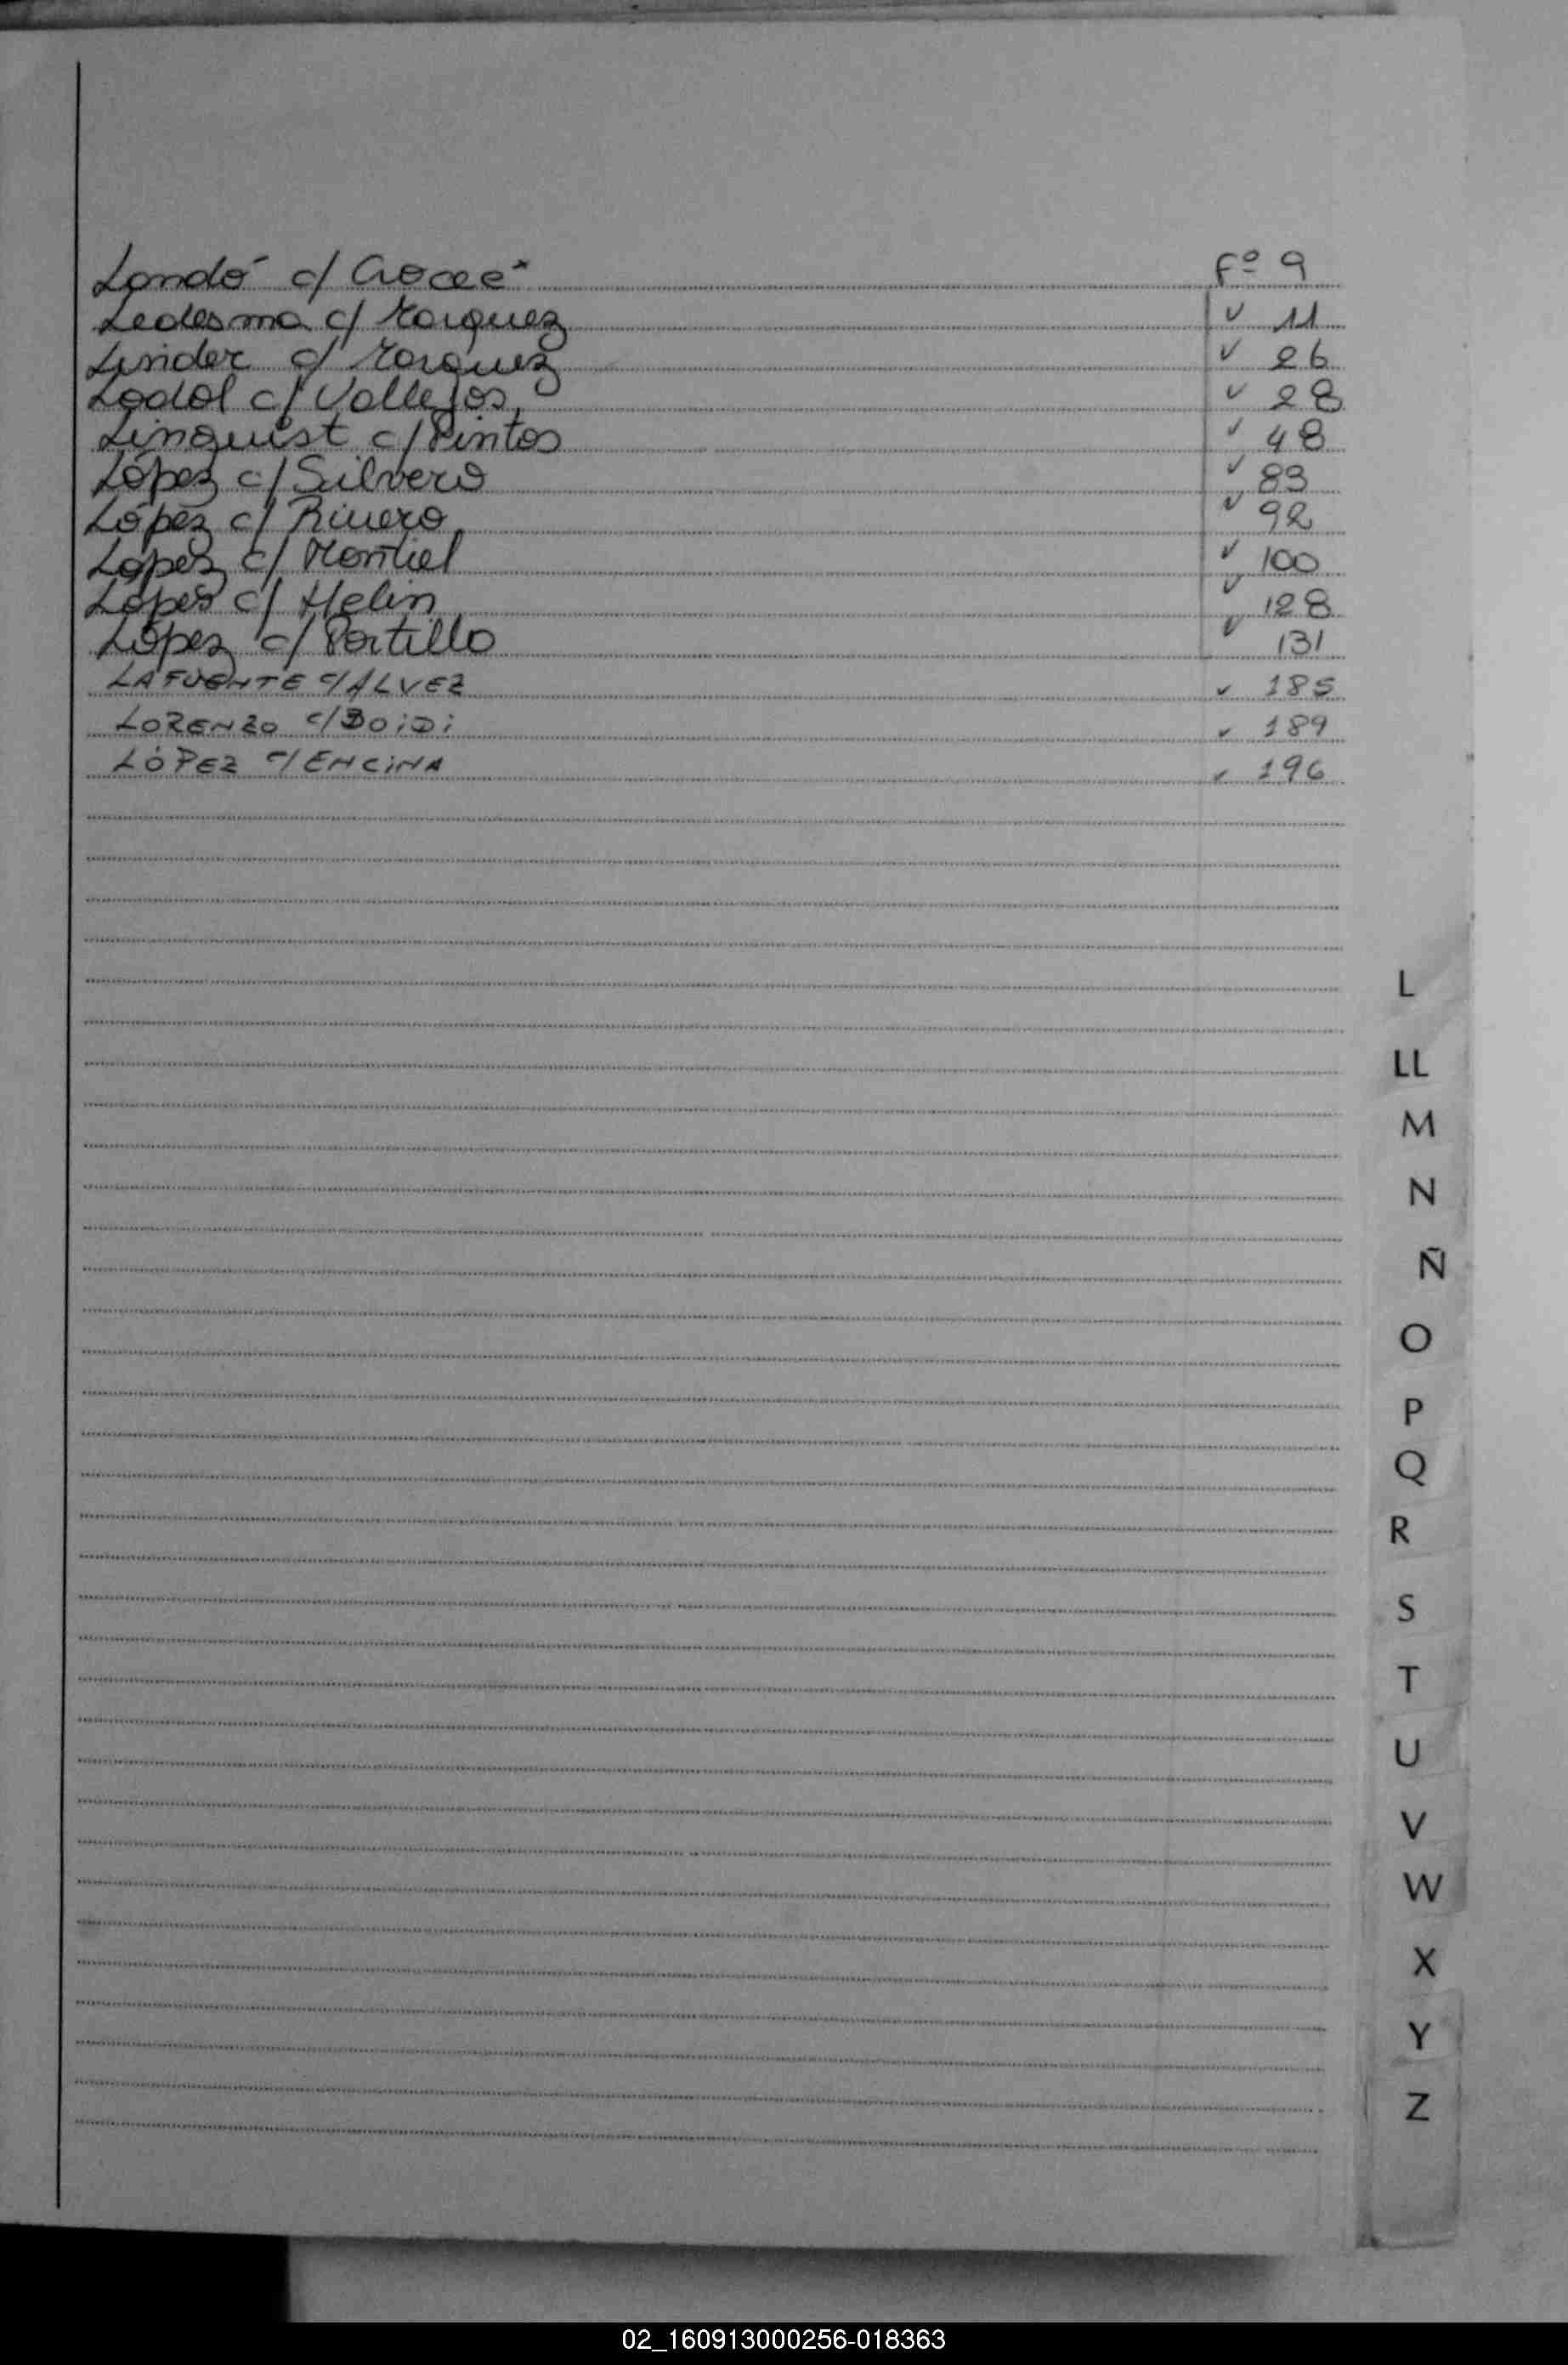 Landó c/ Crocce Fº 9
Ledesma c/ Marquez ✓ 11
Linder c/ Marquez ✓ 26
Lodol c/ Vallejos ✓ 28
Linquist c/ Pintos ✓ 48
López c/ Silvero ✓ 83
López c/ Rivero ✓ 92
Lopez c/ Montiel ✓ 100
López c/ Helin ✓ 128
López c/ Portillo ✓ 131
LAFUENTE c/ ALVEZ ✓ 185
LORENZO c/ BOiDi ✓ 189
LÓPEZ c/ ENCiNA ✓ 196
L
LL
M
N
Ñ
O
P
Q
R
S
T
U
V
W
X
Y
Z
02_160913000256-018363